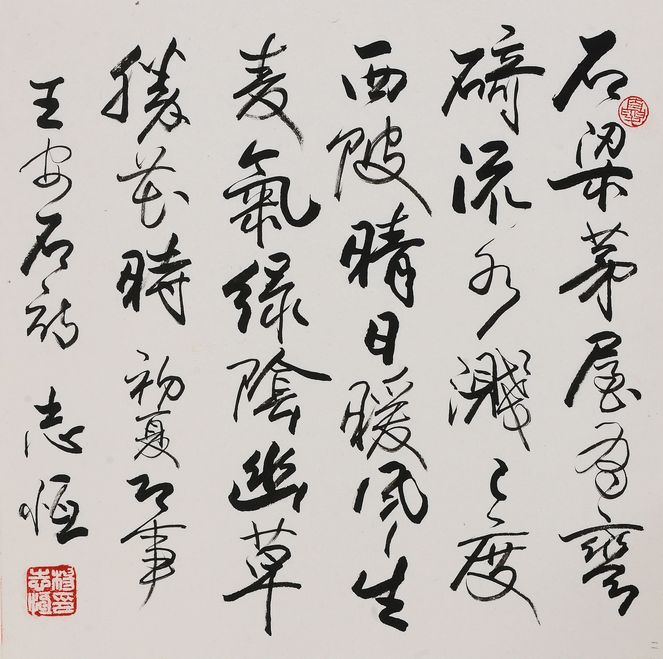 石梁茅屋有彎
碕流水濺〻度
两陂晴日暖風生
麦氣綠陰幽草
勝花時 初夏即事
王安石詩 志恒